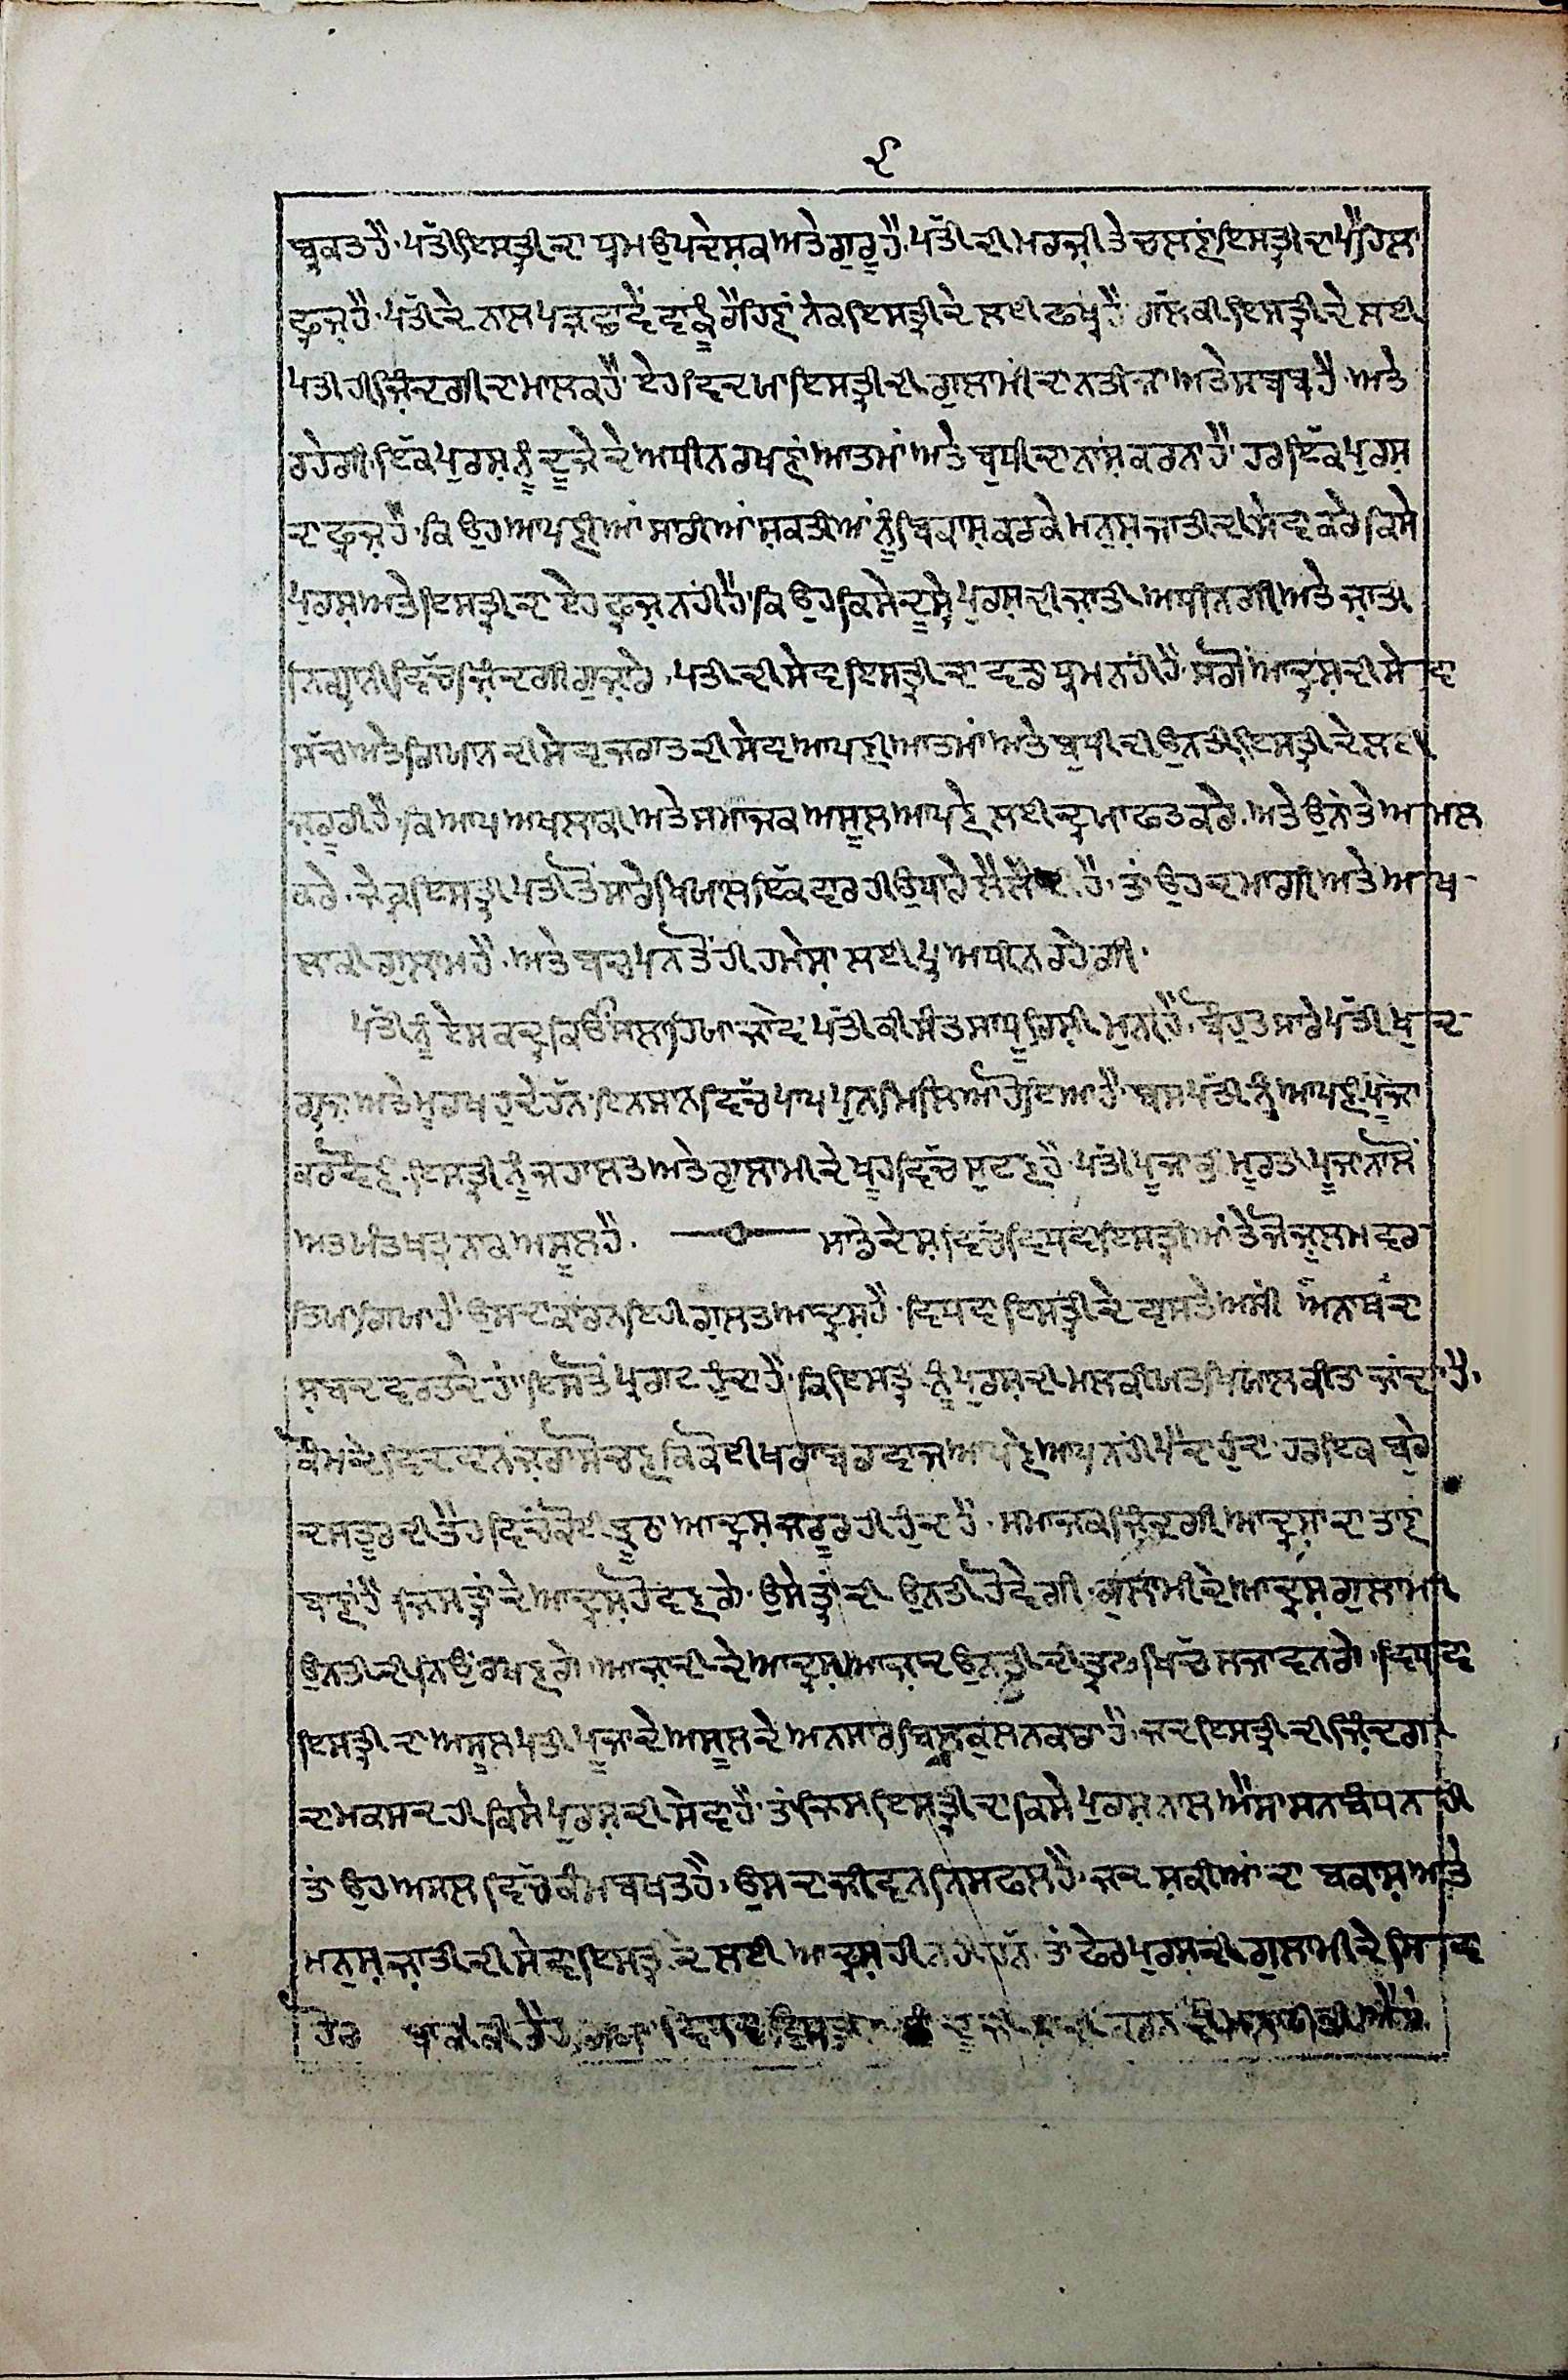 ੯
ਬ੍ਰਕਤ ਹੈ. ਪੱਤੀ ਇਸਤ੍ਰੀ ਦਾ ਧ੍ਰਮ ਉਪਦੇਸ਼ਕ ਅਤੇ ਗੁਰੂ ਹੈ. ਪੱਤੀ ਦੀ ਮਰਜ਼ੀ ਤੇ ਚਲਣਾਂ ਇਸਤ੍ਰੀ ਦਾ ਪੈਹਿਲਾ
ਫ੍ਰਜ਼ ਹੈ. ਪੱਤੀ ਦੇ ਨਾਲ ਇਸਤ੍ਰੀ ਦੇ ਲਈ ਗੱਲ ਕੀ ਇਸਤ੍ਰੀ ਦੇ ਲਈ
ਪਤੀ ਹੀ ਜ਼ਿੰਦਗੀ ਦਾ ਮਾਲਕ ਹੈ ਏਹ ਇਸਤ੍ਰੀ ਦੀ ਗੁਲਾਮੀਂ ਦਾ ਨਤੀਜਾ ਅਤੇ ਸਬਬ ਹੈ. ਅਤੇ
ਰਹੇਗੀ. ਇੱਕ ਪੁਰਸ਼ ਨੂੰ ਦੂਜੇ ਦੇ ਅਧੀਨ ਰਖਣਾਂ ਆਤਮਾਂ ਅਤੇ ਬੁਧੀ ਦਾ ਨਾਸ਼ ਕਰਨਾ ਹੈ. ਹਰ ਇੱਕ ਪੁਰਸ਼
ਦਾ ਫ੍ਰਜ਼ ਹੈ. ਕਿ ਉਹ ਆਪਣੀਆਂ ਸਾਰੀਆਂ ਸ਼ਕਤੀਆਂ ਨੂੰ ਬਿਕਾਸ਼ ਕਰਕੇ ਮਨੁਸ਼ ਜਾਤੀ ਦੀ ਸੇਵਾ ਕਰੇ ਕਿਸੇ
ਪੁਰਸ਼ ਅਤੇ ਇਸਤ੍ਰੀ ਦਾ ਏਹ ਫ੍ਰਜ਼ ਨਹੀਂ ਹੈ. ਕਿ ਉਹ ਕਿਸੇ ਦੂਸ੍ਰੇ ਪੁਰਸ਼ ਦੀ ਜ਼ਾਤੀ ਅਧੀਨਗੀ ਅਤੇ ਜ਼ਾਤੀ
ਨਿਗ੍ਰਾਨੀ ਵਿੱਚ ਜ਼ਿੰਦਗੀ ਗੁਜ਼ਾਰੇ. ਪਤੀ ਦੀ ਸੇਵਾ ਇਸਤ੍ਰੀ ਦਾ ਵਡਾ ਧ੍ਰਮ ਨਹੀਂ ਹੈ. ਸਗੋਂ ਆਦ੍ਰਸ਼ ਦੀ ਸੇਵਾ
ਸੱਚ ਅਤੇ ਗਿਯਾਨ ਦੀ ਸੇਵਾ ਜਗਤ ਦੀ ਸੇਵਾ ਆਪਣੀ ਆਤਮਾਂ ਅਤੇ ਬੁਧੀ ਦੀ ਉਨਤੀ ਇਸਤ੍ਰੀ ਦੇ ਲਈ
ਜ਼ਰੂਰੀ ਹੈ. ਕਿ ਆਪ ਅਖਲਾਕੀ ਅਤੇ ਸਮਾਜਕ ਅਸੂਲ ਆਪਣੇ ਲਈ ਦ੍ਰਯਾਫਤ ਕਰੇ. ਅਤੇ ਉਨਾਂ ਤੇ ਅਮਲ
ਕਰੇ. ਜੇਕ੍ਰ ਇਸਤ੍ਰੀ ਪਤੀ ਤੋਂ ਸਾਰੇ ਖਿਯਾਲ ਇੱਕ ਵਾਰ ਹੀ ਉਧਾਰੇ ਲੈ ਲੈਂਦੀ ਹੈ. ਤਾਂ ਉਹ ਦਮਾਗੀ ਅਤੇ ਅਖ-
ਲਾਕੀ ਗੁਲਾਮ ਹੈ. ਅਤੇ ਬਚਪਨ ਤੋਂ ਹੀ ਹਮੇਸ਼ਾ ਲਈ ਪ੍ਰ ਅਧੀਨ ਰਹੇਗੀ.
ਪੱਤੀ ਨੂੰ ਏਸ ਕਦ੍ਰ ਕਿਉਂ ਪੱਤੀ ਕੀ ਸੰਤ ਸਾਧੂ ਰਿਸ਼ੀ ਮੁਨੀ ਹੈ. ਬੌਹਤ ਸਾਰੇ ਪੱਤੀ ਖੁਦ-
ਗ੍ਰਜ਼ ਅਤੇ ਮੂਰਖ ਹੁੰਦੇ ਹੱਨ. ਇਨਸਾਨ ਵਿੱਚ ਪਾਪ ਪੁਨ ਮਿਲਿਆ ਹੋਇਆ ਹੈ ਬਸ ਪੱਤੀ ਨੂੰ ਆਪਣੀ ਪੂਜਾ
ਇਸਤ੍ਰੀ ਨੂੰ ਜਹਾਲਤ ਅਤੇ ਗੁਲਾਮੀ ਦੇ ਖੂਹ ਵਿੱਚ ਸੁਟਣਾ ਹੈ. ਪਤੀ ਪੂਜਾ ਬੁਤ ਮੂਰਤੀ ਪੂਜਾ ਨਾਲੋਂ
ਅਤਯੰਤ ਖਤ੍ਰਨਾਕ ਅਸੂਲ ਹੈ. ——— ਸਾਡੇ ਦੇਸ਼ ਵਿੱਚ ਵਿਧਵਾ ਇਸਤ੍ਰੀਆਂ ਤੇ ਜੋ ਜ਼ੁਲਮ ਵਰ-
ਤਿਆ ਗਿਆ ਹੈ ਉਸਦਾ ਕਾਰਨ ਇਹੀ ਗ਼ਲਤ ਆਦ੍ਰਸ਼ ਹੈ. ਵਿਧਵਾ ਇਸਤ੍ਰੀ ਦੇ ਵਾਸਤੇ ਅਸੀਂ ਅਨਾਥ ਦਾ
ਸ਼ਬਦ ਵਰਤਦੇ ਹਾਂ ਇਸਤੋਂ ਪ੍ਰਗਟ ਹੁੰਦਾ ਹੈ. ਕਿ ਇਸਤ੍ਰੀ ਨੂੰ ਪੁਰਸ਼ ਦੀ ਮਲਕੀਯਤ ਖਿਯਾਲ ਕੀਤਾ ਜਾਂਦਾ ਹੈ.
ਕੌਮ ਦੇ ਵਿਦਵਾਨ ਜ਼ਰਾ ਸੋਚਣ ਕਿ ਕੋਈ ਖਰਾਬ ਰਵਾਜ ਆਪਣੇ ਆਪ ਨਹੀਂ ਪੈਦਾ ਹੁੰਦਾ ਹਰ ਇਕ ਬੁਰੇ
ਦਸਤੂਰ ਦੀ ਤੈਹ ਵਿੱਚ ਕੋਈ ਝੂਠਾ ਆਦ੍ਰਸ਼ ਜ਼ਰੂਰ ਹੀ ਹੁੰਦਾ ਹੈ. ਸਮਾਜਕ ਜ਼ਿੰਦਗੀ ਆਦ੍ਰਸ਼ਾਂ ਦਾ ਤਾਣਾ
ਬਾਣਾਂ ਹੈ ਜਿਸਤ੍ਰਾਂ ਦੇ ਆਦ੍ਰਸ਼ ਹੋਵਣਗੇ. ਉਸੇਤ੍ਰਾਂ ਦੀ ਉਨਤੀ ਹੋਵੇਗੀ. ਗੁਲਾਮੀ ਦੇ ਆਦ੍ਰਸ਼ ਗੁਲਾਮੀ
ਆਜ਼ਾਦੀ ਦੇ ਆਦ੍ਰਸ਼ ਆਜ਼ਾਦ ਉਨਤੀ ਦੀ ਤ੍ਰਫ ਖਿੱਚ ਲਜਾਵਨਗੇ. ਵਿਧਵਾ
ਇਸਤ੍ਰੀ ਦਾ ਅਸੂਲ ਪਤੀ ਪੂਜਾ ਦੇ ਅਸੂਲ ਦੇ ਅਨਸਾਰ ਬਿਲਕੁਲ ਨਕਾਰਾ ਹੈ. ਜਦ ਇਸਤ੍ਰੀ ਦੀ ਜ਼ਿੰਦਗੀ
ਦਾ ਮਕਸਦ ਹੀ ਕਿਸੇ ਪੁਰਸ਼ ਦੀ ਸੇਵਾ ਹੈ. ਤਾਂ ਜਿਸ ਇਸਤ੍ਰੀ ਦਾ ਕਿਸੇ ਪੁਰਸ਼ ਨਾਲ ਐਸਾ ਸਨਬੰਧ ਨਹੀਂ
ਤਾਂ ਉਹ ਅਸਲ ਵਿੱਚ ਕੰਮਬਖਤ ਹੈ. ਉਸਦਾ ਜੀਵਨ ਨਿਸਫਲ ਹੈ. ਜਦ ਸ਼ਕਤੀਆਂ ਦਾ ਬਕਾਸ਼ ਅਤੇ
ਮਨੁਸ਼ ਜ਼ਾਤੀ ਦੀ ਸੇਵਾ ਇਸਤ੍ਰੀ ਦੇ ਲਈ ਆਦ੍ਰਸ਼ ਹੀ ਨਹੀਂ ਹੱਨ. ਤਾਂ ਫੇਰ ਪੁਰਸ਼ ਦੀ ਗੁਲਾਮੀ ਦੇ ਸਿਵਾ
ਹੋਰ ਬਾਕੀ ਕੀ ਰੈਹ ਗਿਆ